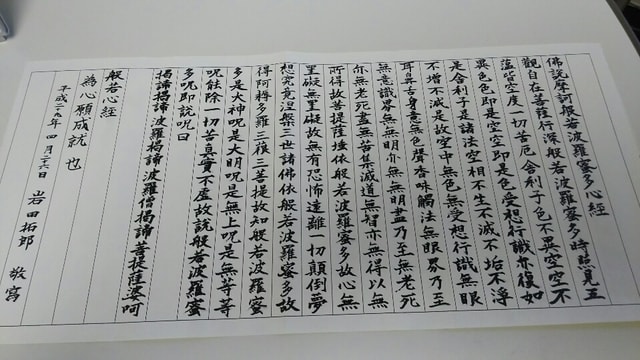 佛説摩訶般若波羅蜜多心経
觀自在菩薩行深般若波羅蜜多時照見五
蘊皆空度一切苦厄舎利子色不異空空不
異色色即是空空即是色受想行識亦復如
是舎利子是諸法空相不生不滅不垢不浄
不増不減是故空中無色無受想行識無眼
耳鼻舌身意無色聲香味觸法無眼界乃至
無意識界無無明亦無無明盡乃至無老死
亦無老死盡無苦集滅道無智亦無得以無
所得故菩提薩埵依般若波羅蜜多故心無
罣礙無罣礙故無有恐怖遠離一切顛倒夢
想究竟涅槃三世諸佛依般若波羅蜜多故
得阿耨多羅三藐三菩提故知般若波羅蜜
多是大神呪是大明呪是無上呪是無等等
呪能除一切苦真實不虚故説般若波羅蜜
多呪即説呪曰
掲諦掲諦波羅掲諦波羅僧掲諦菩提薩婆訶
般若心経
為心願成就也
平成二九年 四月二六日 岩田拓郎 敬寫